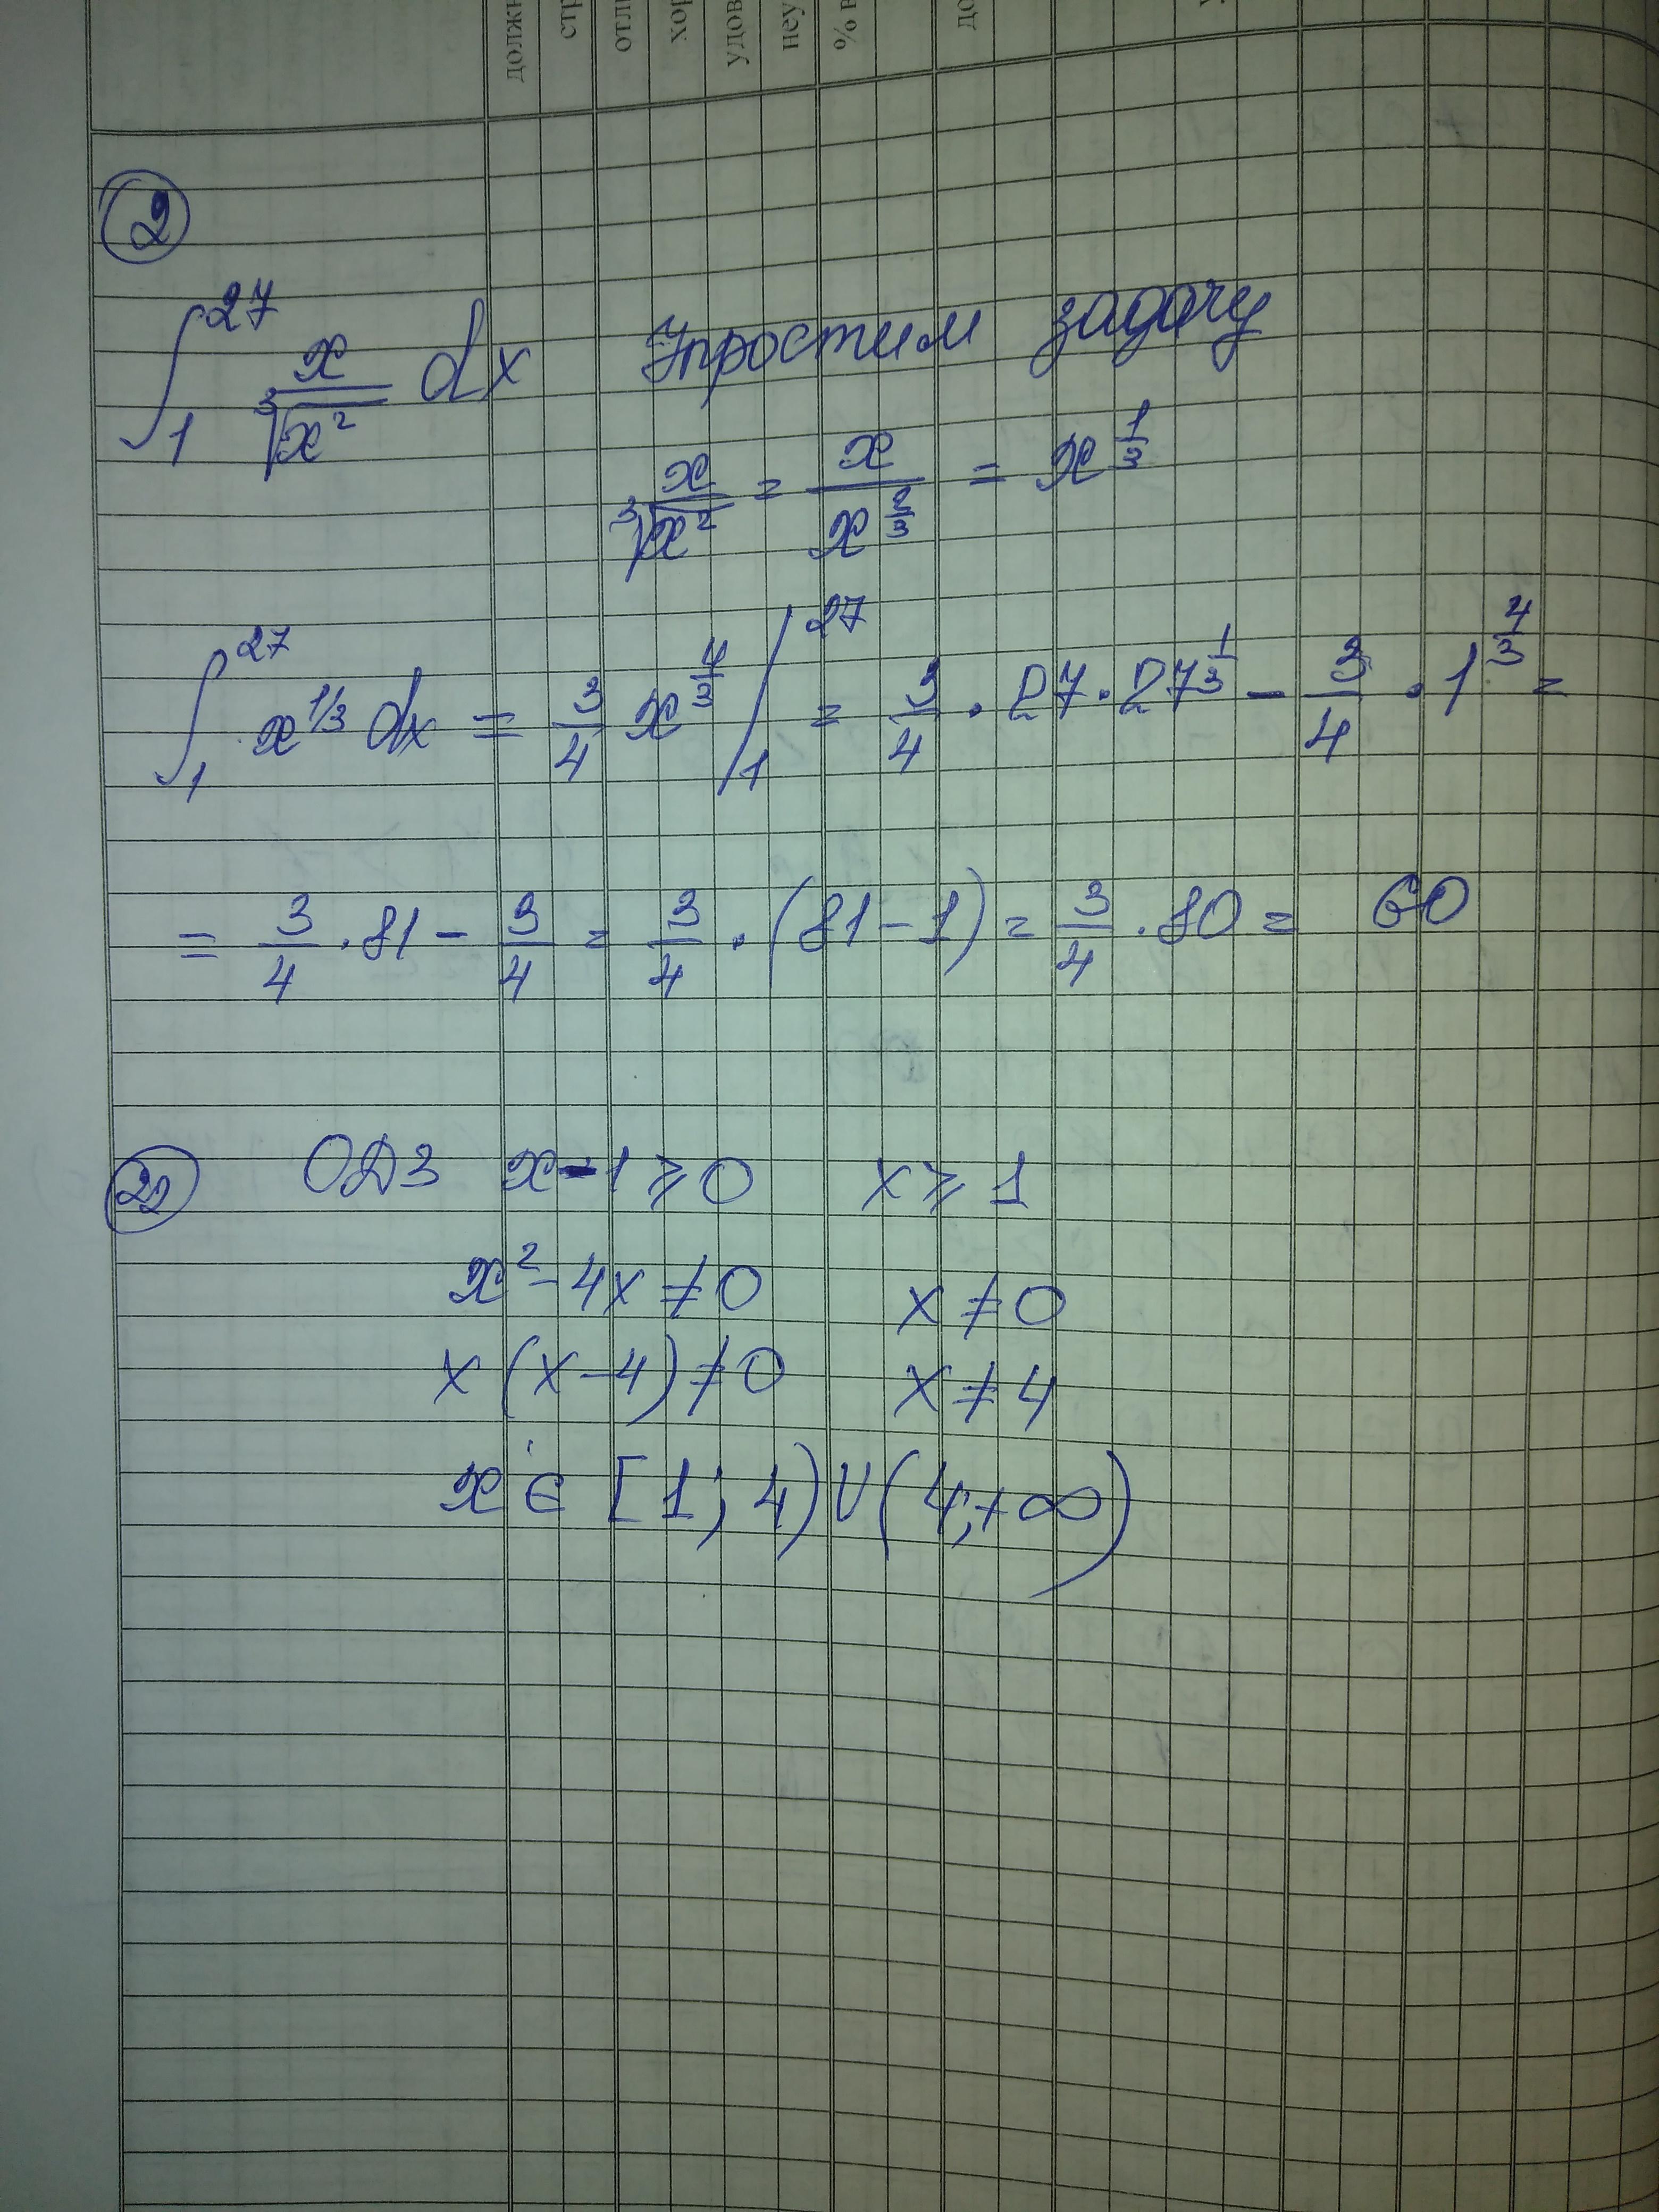 должн
стр
отл
хор
удов
неу
% в
до
2
∫₁²⁷ x/∛x² dx Упростим задачу
x/∛x² = x/x^(2/3) = x^(1/3)
∫₁²⁷ x^(1/3) dx = 3/4 x^(4/3) /₁²⁷ = 3/4 · 27 · 27^(1/3) - 3/4 · 1^(4/3) =
= 3/4 · 81 - 3/4 = 3/4 · (81 - 1) = 3/4 · 80 = 60
ОДЗ x - 1 ⩾ 0 x ⩾ 1
x² - 4x ≠ 0 x ≠ 0
x (x - 4) ≠ 0 x ≠ 4
x ∈ [1; 4) ∪ (4; +∞)